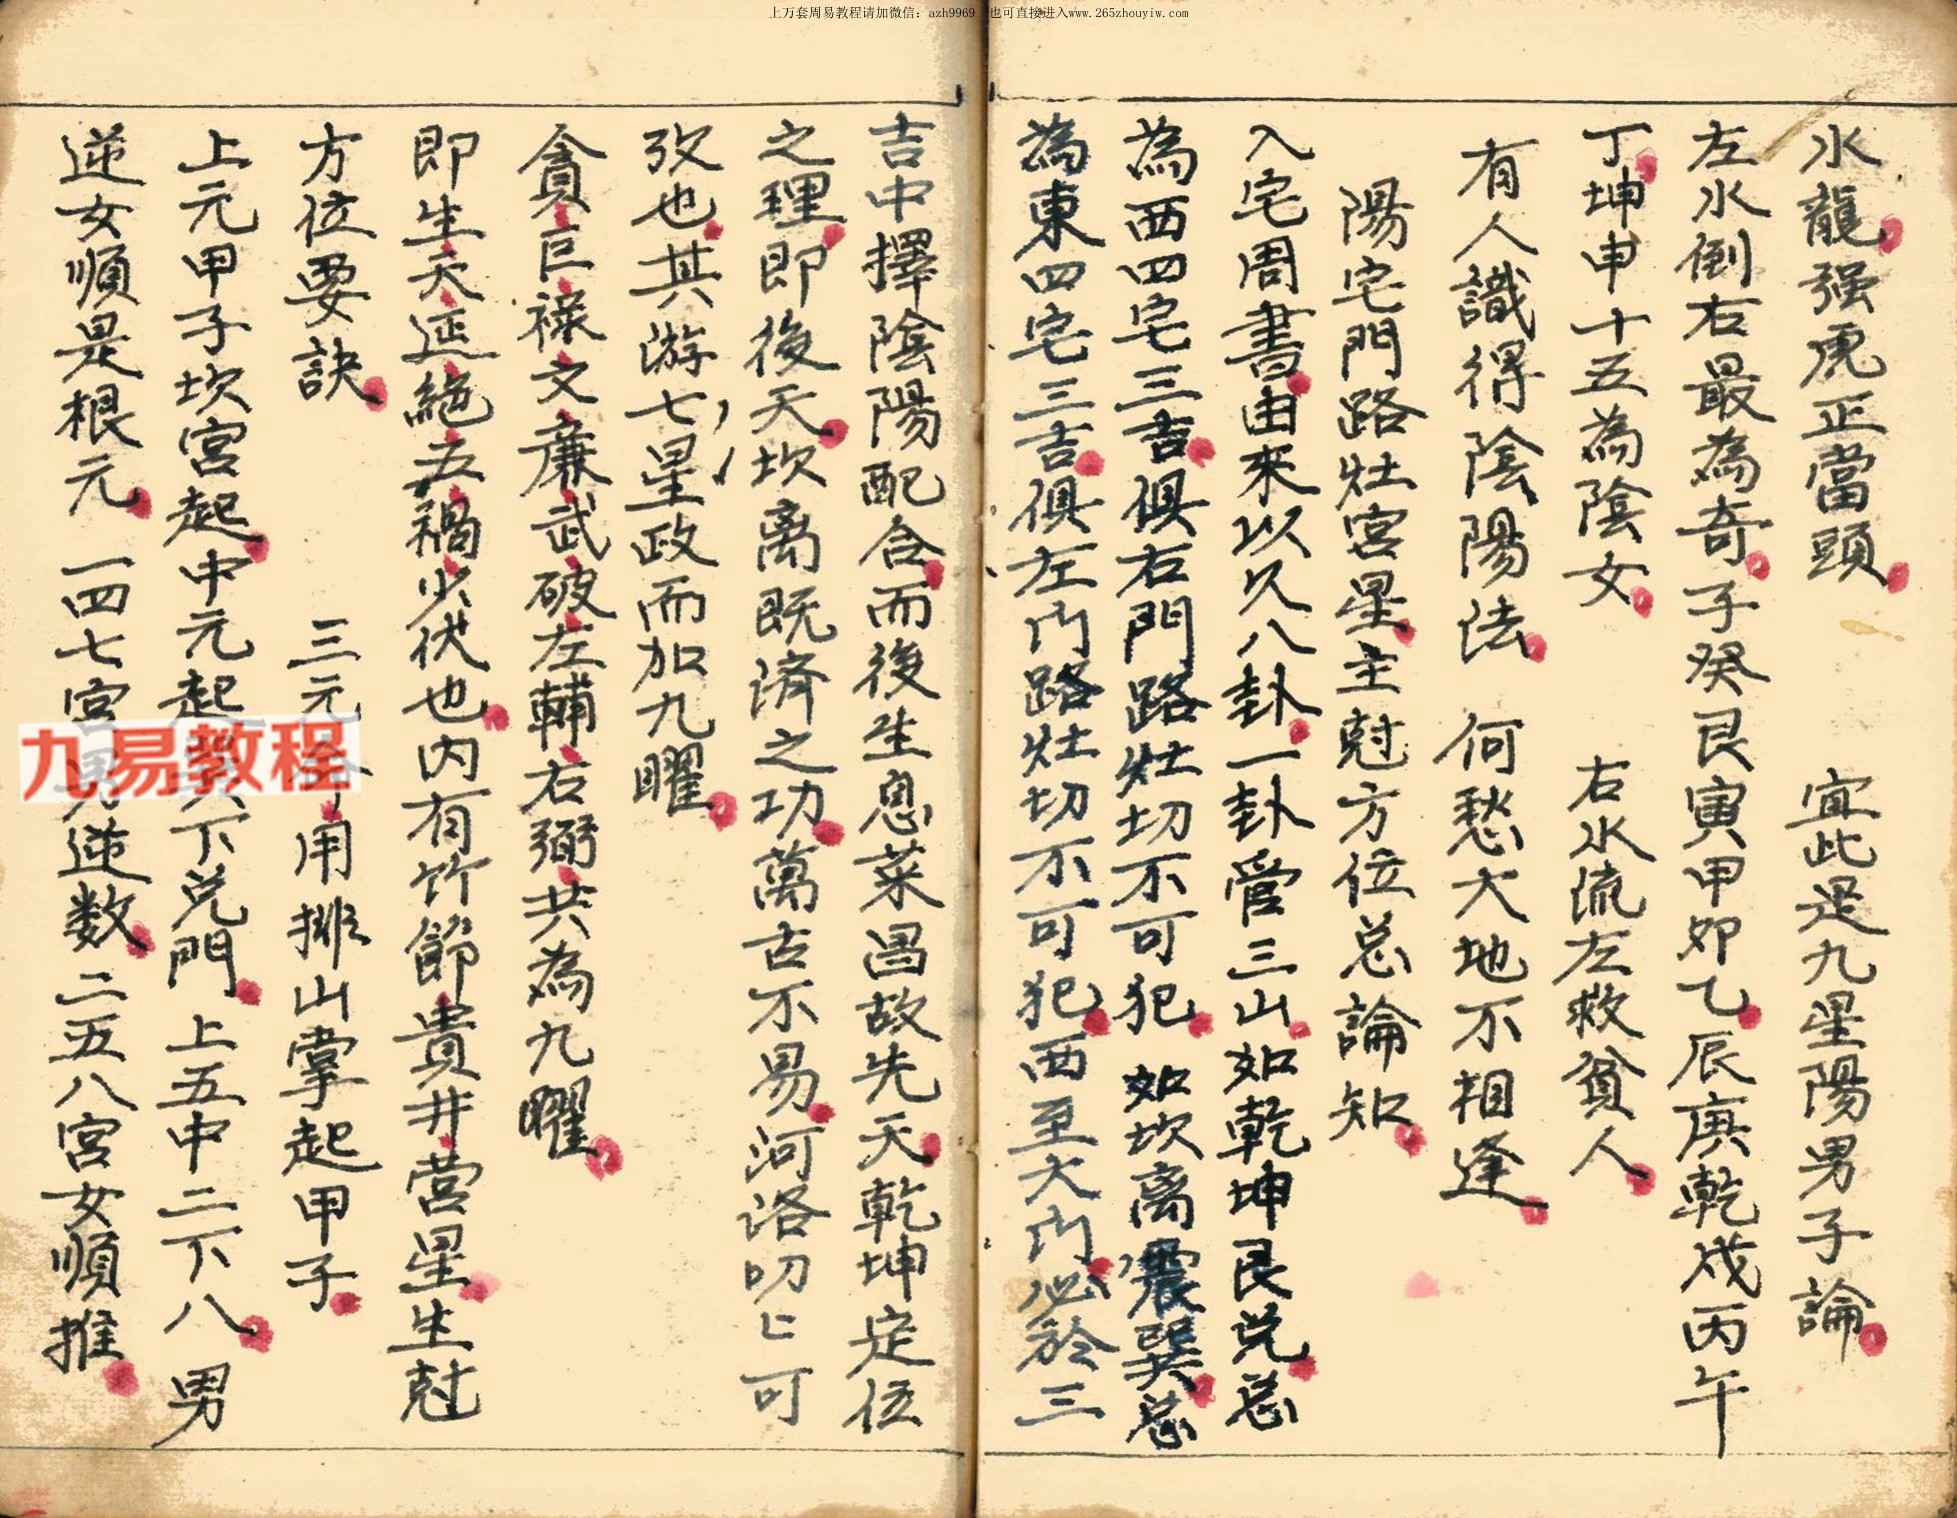 上万套周易教程请加微信：azh9969 也可直接进入www.265zhouyiw.com
水龍强虎正當頭 宜此是九星陽男子論
左水倒右最為奇子癸艮寅甲卯乙辰庚乾戌丙午
丁坤申十五為陰女 右水流左救貧人
有人識得陰陽法 何愁大地不相逢
陽宅門路灶宮星主尅方位总論知
入宅周書由來以久八卦一卦管三山如乾坤艮兌总
為西四宅三吉俱右門路灶切不可犯如坎离震巽总
為東四宅三吉俱左门路灶切不可犯西至大门必於三
吉中擇陰陽配合而後生息菜昌故先天乾坤定位
之理即後天坎离既济之功萬古不易河洛叨上可
攷也其游七星政而加九曜
貪巨祿文廉武破左輔右弼共為九曜
即生天延絕五禍六伏也内有竹節貴井营星生尅
方位要訣 三元用排山掌起甲子
上元甲子坎宮起中元起下兌門上五中二下八男
逆女順是根元 一四七宮男逆数二五八宮女順推
九易教程